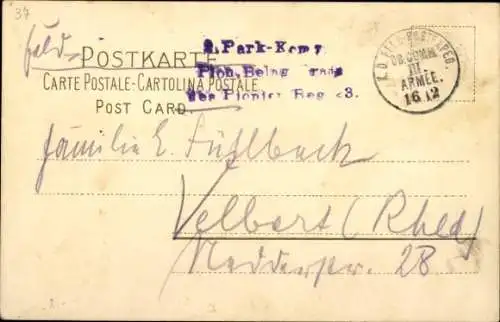 37
Feld-
POSTKARTE
CARTE POSTALE-CARTOLINA POSTALE
POST CARD.
2. Park-Komp
Pion. Belag
des Pionier Reg 23.
K.D. FELD-POSTEXPED.
III.
ARMEE.
16 12
Familie E.
Velbert (Rhld)
28